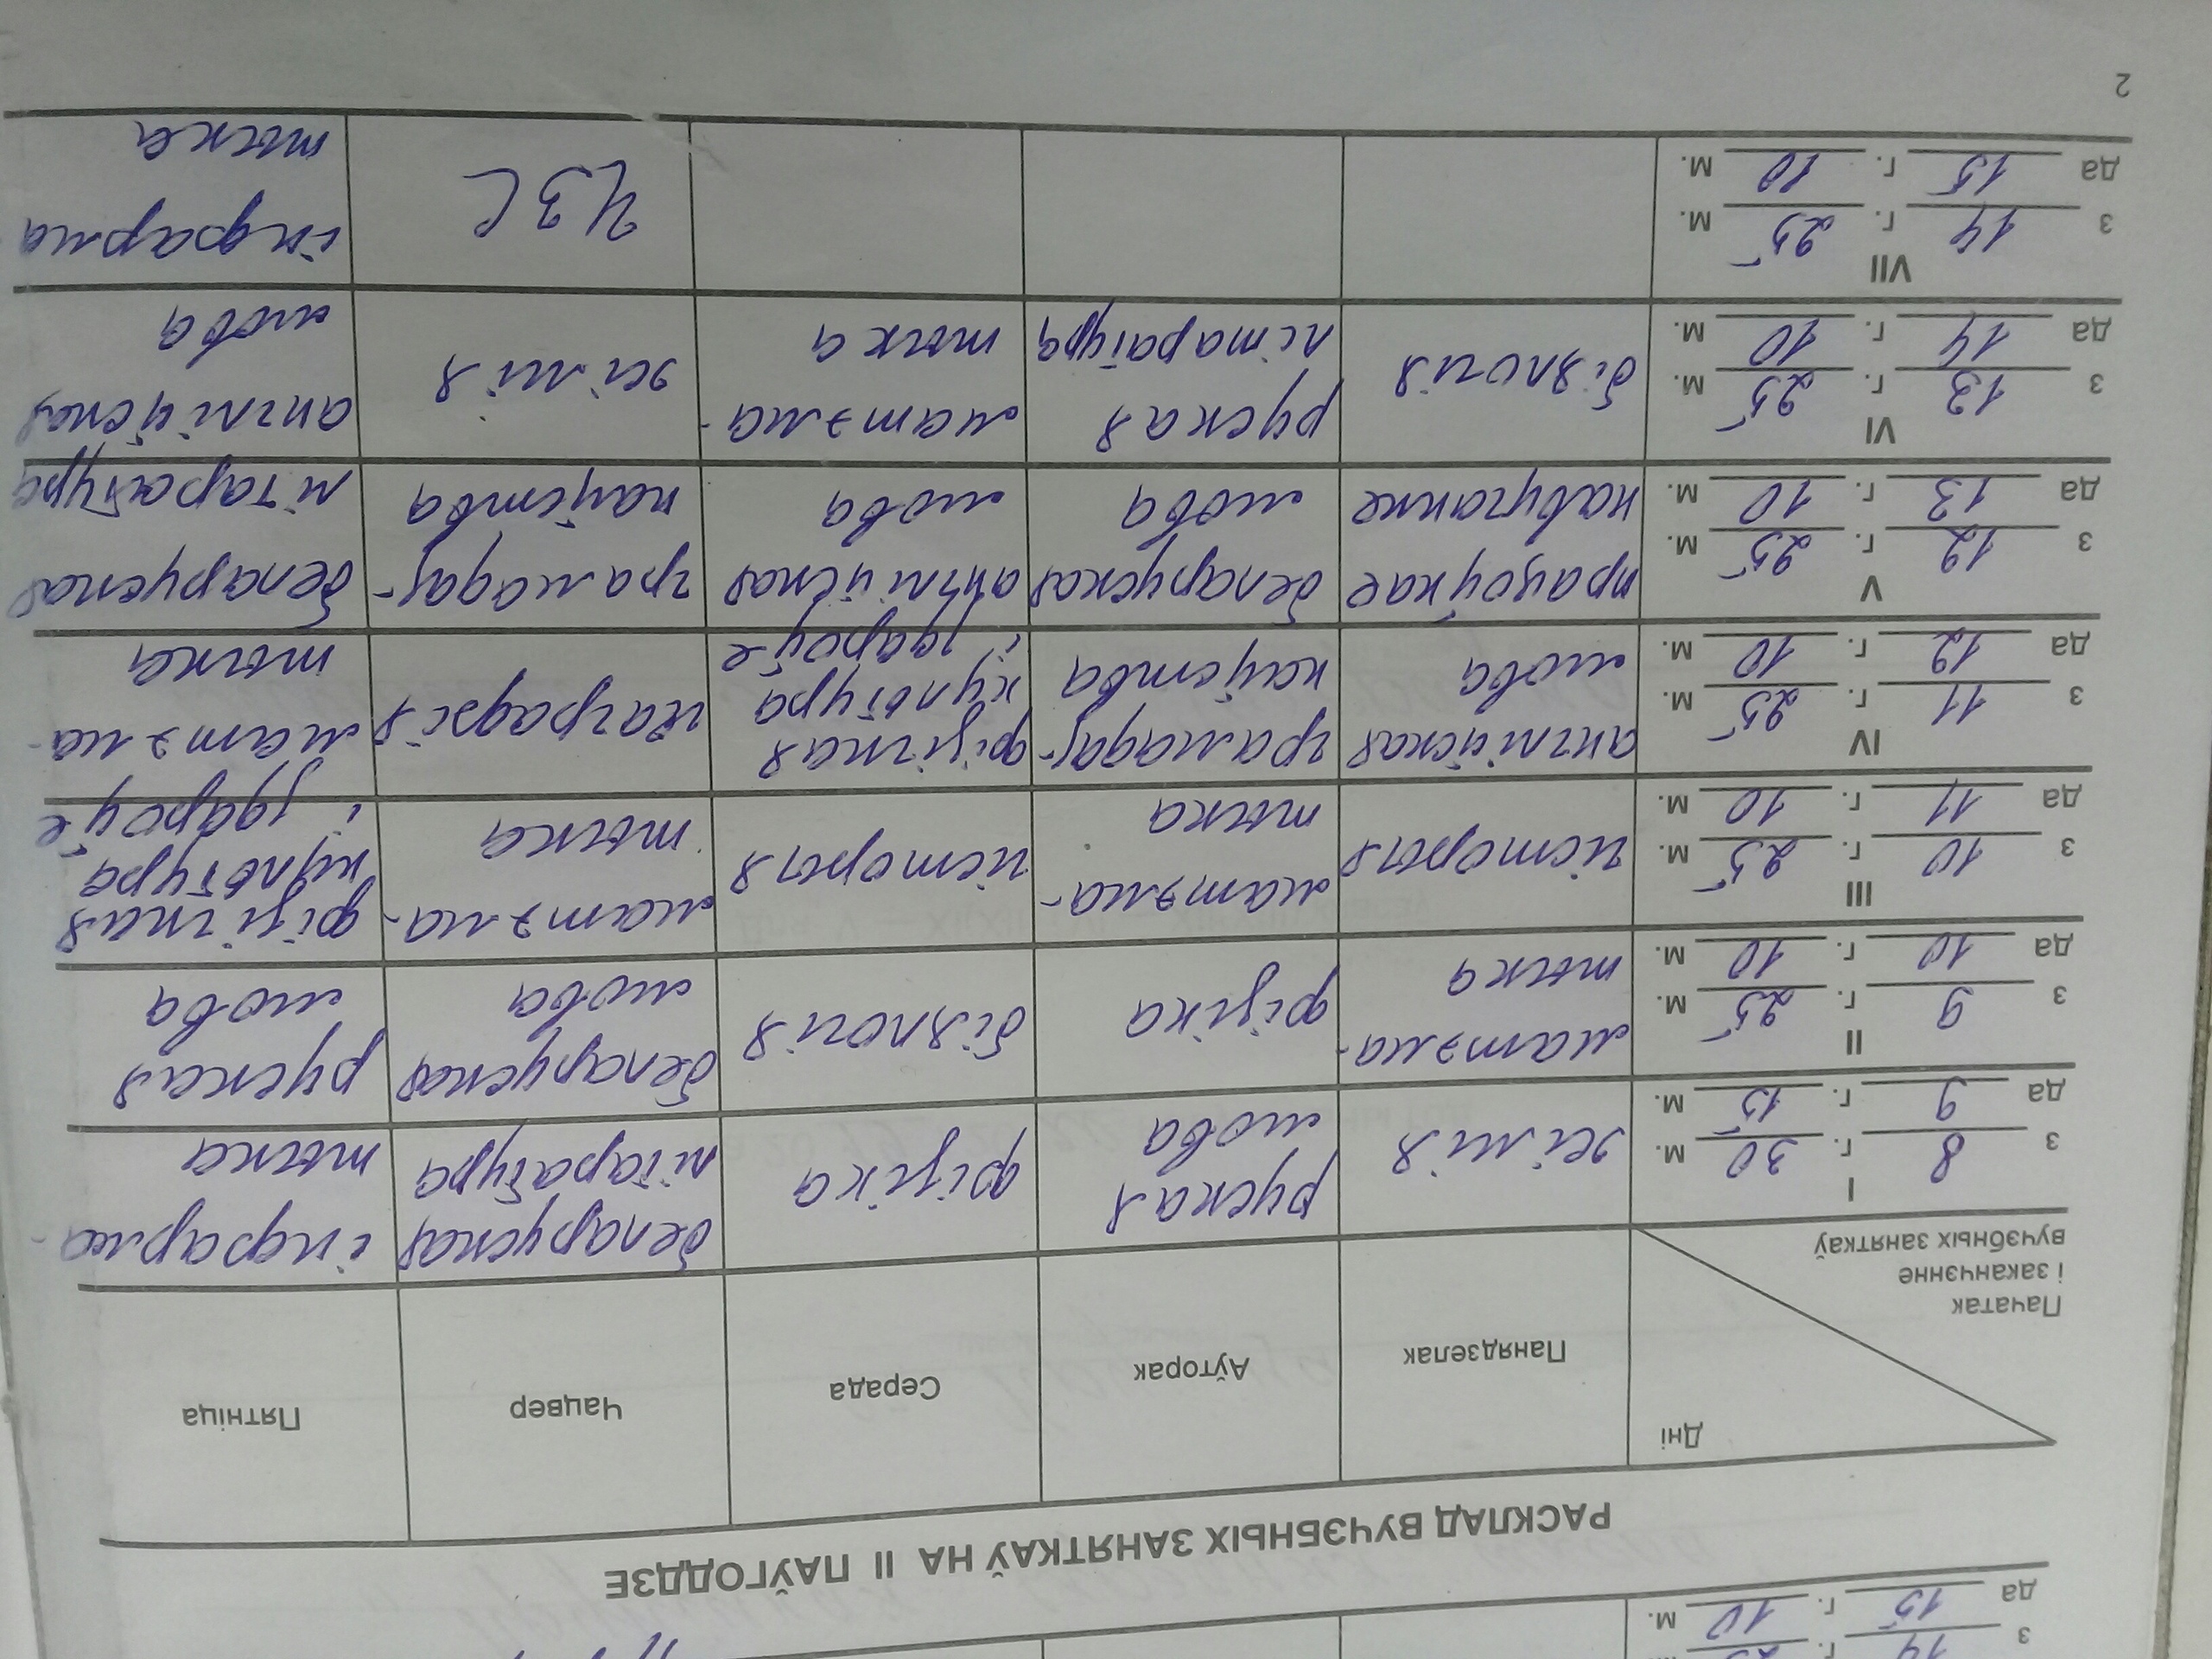 з 14 г. 25 м.
да 15 г. 10 м.
РАСКЛАД ВУЧЭБНЫХ ЗАНЯТКАЎ НА II ПАЎГОДДЗЕ
Дні
Пачатак
і заканчэнне
вучэбных заняткаў
Панядзелак
Аўторак
Серада
Чацвер
Пятніца
I
з 8 г. 30 м.
да 9 г. 15 м.
хімія
руская
мова
фізіка
беларуская
літаратура
інфарма-
тыка
II
з 9 г. 25 м.
да 10 г. 10 м.
матэма-
тыка
фізіка
біялогія
беларуская
мова
руская
мова
III
з 10 г. 25 м.
да 11 г. 10 м.
гісторыя
матэма-
тыка
гісторыя
матэма-
тыка
фізічная
культура
і здароўе
IV
з 11 г. 25 м.
да 12 г. 10 м.
англійская
мова
грамадаз-
наўства
фізічная
культура
і здароўе
геаграфія
матэма-
тыка
V
з 12 г. 25 м.
да 13 г. 10 м.
працоўнае
навучанне
беларуская
мова
англійская
мова
грамадаз-
наўства
беларуская
літаратура
VI
з 13 г. 25 м.
да 14 г. 10 м.
біялогія
руская
літаратура
матэма-
тыка
хімія
англійская
мова
VII
з 14 г. 25 м.
да 15 г. 10 м.
ЧЗС
інфарма
тыка
2